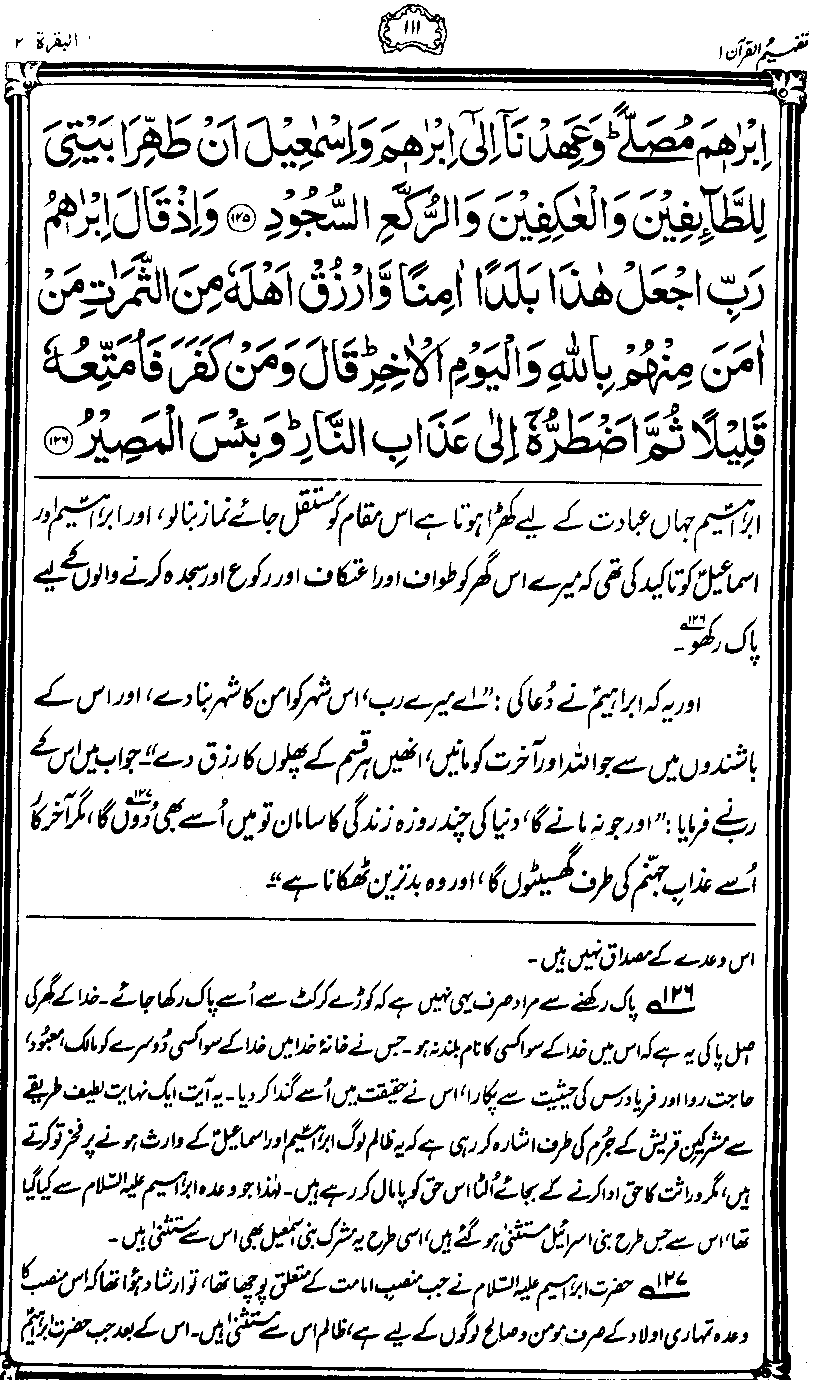 تفہیم القرآن ۱
۱۱۱
البقرۃ ۲
اِبْرٰهٖمَ مُصَلًّی ؕ وَعَهِدْنَاۤ اِلٰۤی اِبْرٰهٖمَ وَاِسْمٰعِیْلَ اَنْ طَهِّرَا بَیْتِیَ
لِلطَّآئِفِیْنَ وَالْعٰکِفِیْنَ وَالرُّکَّعِ السُّجُوْدِ ﴿۱۲۵﴾ وَاِذْ قَالَ اِبْرٰهٖمُ
رَبِّ اجْعَلْ هٰذَا بَلَدًا اٰمِنًا وَّارْزُقْ اَهْلَهٗ مِنَ الثَّمَرٰتِ مَنْ
اٰمَنَ مِنْهُمْ بِاللّٰهِ وَالْیَوْمِ الْاٰخِرِ ؕ قَالَ وَمَنْ کَفَرَ فَاُمَتِّعُهٗ
قَلِیْلًا ثُمَّ اَضْطَرُّهٗۤ اِلٰی عَذَابِ النَّارِ ؕ وَبِئْسَ الْمَصِیْرُ ﴿۱۲۶﴾
ابراہیم جہاں عبادت کے لیے کھڑا ہوتا ہے اس مقام کو مستقل جائے نماز بنا لو، اور ابراہیم اور
اسماعیلؑ کو تاکید کی تھی کہ میرے اس گھر کو طواف اور اعتکاف اور رکوع اور سجدہ کرنے والوں کے لیے
پاک رکھو۱۲۶۔
اور یہ کہ ابراہیمؑ نے دُعا کی: ”اے میرے رب، اس شہر کو امن کا شہر بنا دے، اور اس کے
باشندوں میں سے جو اللہ اور آخرت کو مانیں، انھیں ہر قسم کے پھلوں کا رزق دے“۔ جواب میں اس کے
رب نے فرمایا: ”اور جو نہ مانے گا، دنیا کی چند روزہ زندگی کا سامان تو میں اُسے بھی دُوں گا۱۲۷، مگر آخرکار
اُسے عذابِ جہنّم کی طرف گھسیٹوں گا، اور وہ بدترین ٹھکانا ہے“۔
اس وعدے کے مصداق نہیں ہیں۔
۱۲۶ پاک رکھنے سے مراد صرف یہی نہیں ہے کہ کوڑے کرکٹ سے اُسے پاک رکھا جائے۔ خدا کے گھر کی
اصل پاکی یہ ہے کہ اس میں خدا کے سوا کسی کا نام بلند نہ ہو۔ جس نے خانۂ خدا میں خدا کے سوا کسی دُوسرے کو مالک، معبُود،
حاجت روا اور فریادرس کی حیثیت سے پکارا، اس نے حقیقت میں اُسے گندا کر دیا۔ یہ آیت ایک نہایت لطیف طریقے
سے مشرکینِ قریش کے جُرم کی طرف اشارہ کر رہی ہے کہ یہ ظالم لوگ ابراہیم اور اسماعیلؑ کے وارث ہونے پر فخر تو کرتے
ہیں، مگر وراثت کا حق ادا کرنے کے بجائے اُلٹا اس حق کو پامال کر رہے ہیں۔ لہٰذا جو وعدہ ابراہیم علیہ السّلام سے کیا گیا
تھا، اس سے جس طرح بنی اسرائیل مستثنیٰ ہو گئے ہیں، اسی طرح یہ مشرک بنی اسمٰعیل بھی اس سے مستثنیٰ ہیں۔
۱۲۷ حضرت ابراہیم علیہ السّلام نے جب منصبِ امامت کے متعلق پوچھا تھا، تو ارشاد ہؤا تھا کہ اس منصب کا
وعدہ تمہاری اولاد کے صرف مومن و صالح لوگوں کے لیے ہے، ظالم اس سے مستثنیٰ ہیں۔ اس کے بعد جب حضرت ابراہیمؑ